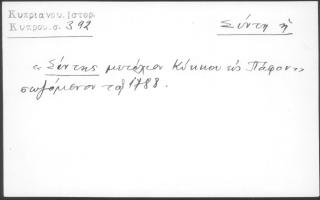 Κυπριανου. Ιστορ.
Κυπρου. σ. 392
Σίντη ἡ
«Σίντης μετόχιον Κύκκου εἰς Πάφον»
σωζόμενον τῷ 1788.